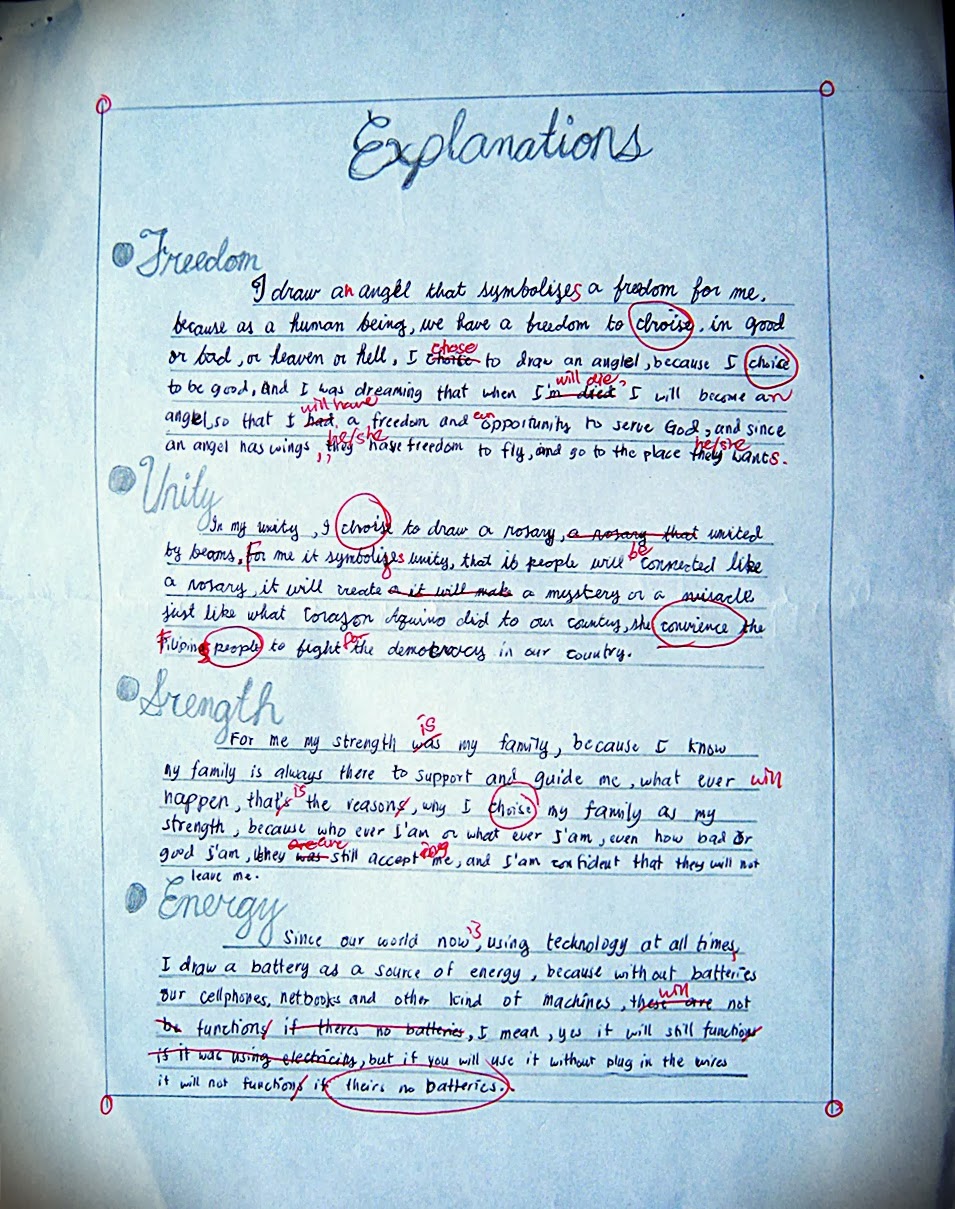 Explanations
Freedom
I draw an angel that symbolizes a freedom for me,
because as a human being, we have a freedom to choise, in good
or bad, or heaven or hell, I choice chose to draw an anglel, because I choice
to be good, and I was dreaming that when I'm died will die, I will become an
angel, so that I had will have a freedom and an opportunity to serve God, and since
an angel has wings, they he/she have freedom to fly, and go to the place they he/she wants.
Unity
In my unity, I choise to draw a rosary, a rosary that united
by beams, For me it symbolizes unity, that if people will be connected like
a rosary, it will create a it will make a mystery or a miracle
just like what Corazon Aquino did to our country, she convience the
Filipinos people to fight for the democracy in our country.
Srength
For me my strength was is my family, because I know
my family is always there to support and guide me, what ever will
happen, that's is the reasons, why I choise my family as my
strength, because who ever I'am or what ever I'am, even how bad or
good I'am, they was are still accept me, and I'am confident that they will not
leave me.
Energy
Since our world now is, using technology at all times,
I draw a battery as a source of energy, because without batteries
our cellphones, netbooks and other kind of machines, these are will not
be functions if theres no batteries, I mean, yes it will still functions
if it was using electricity, but if you will use it without plug in the wires
it will not functions if theirs no batteries.